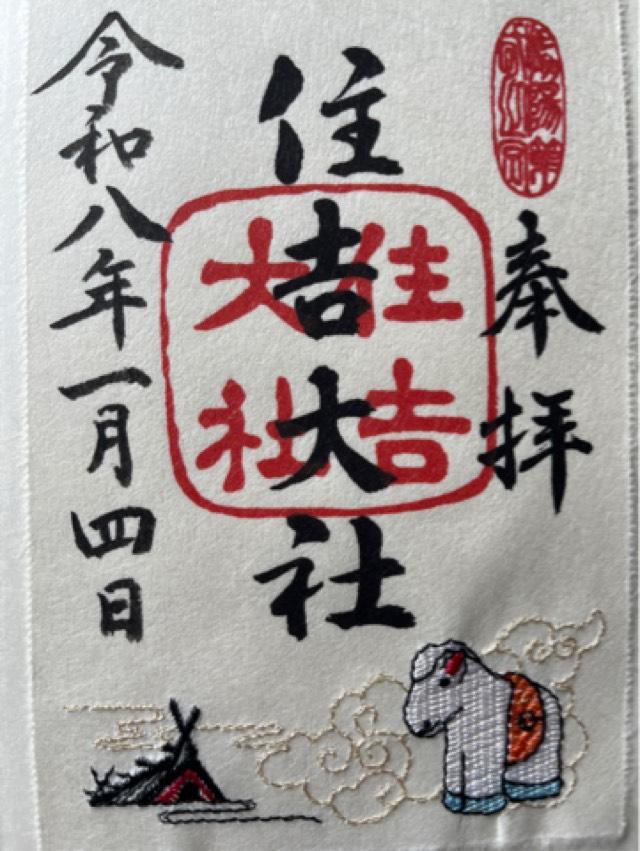 奉拝
住吉大社
住吉
大社
令和八年一月四日